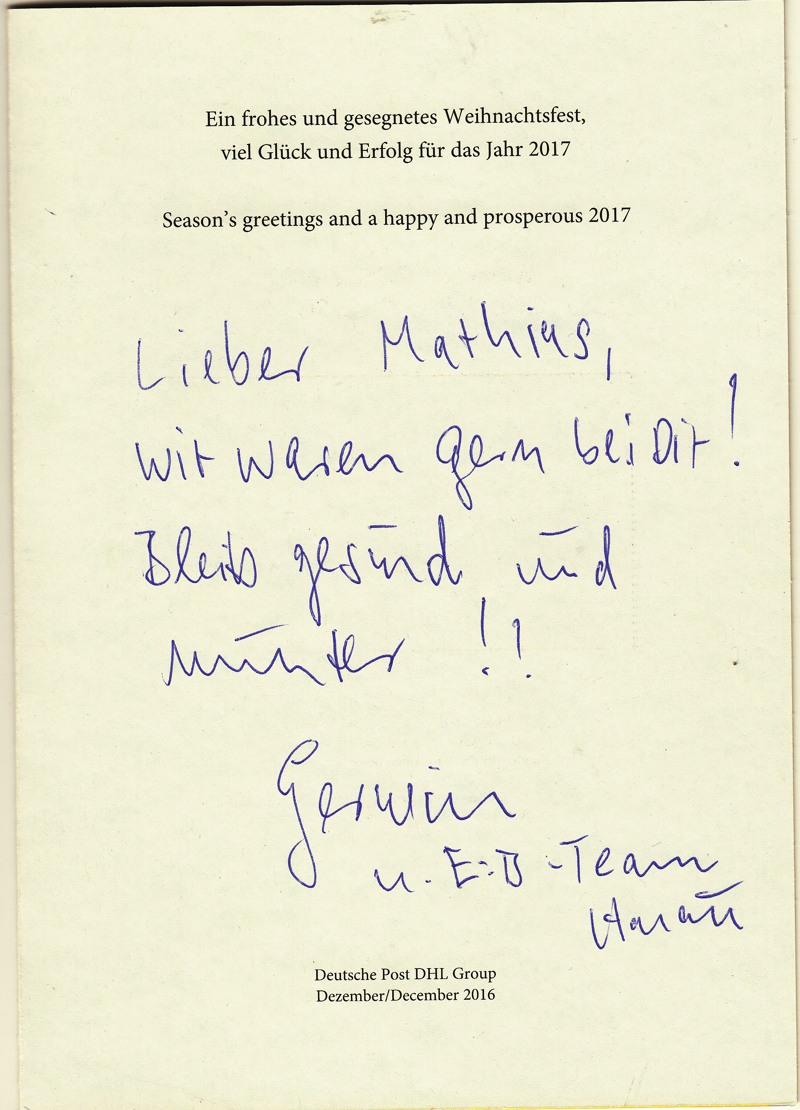 Ein frohes und gesegnetes Weihnachtsfest,
viel Glück und Erfolg für das Jahr 2017
Season's greetings and a happy and prosperous 2017
Lieber Mathias,
wir waren gern bei Dir!
Bleib gesund und
munter !!
Gerwin
u. E:B-Team
Hanau
Deutsche Post DHL Group
Dezember/December 2016